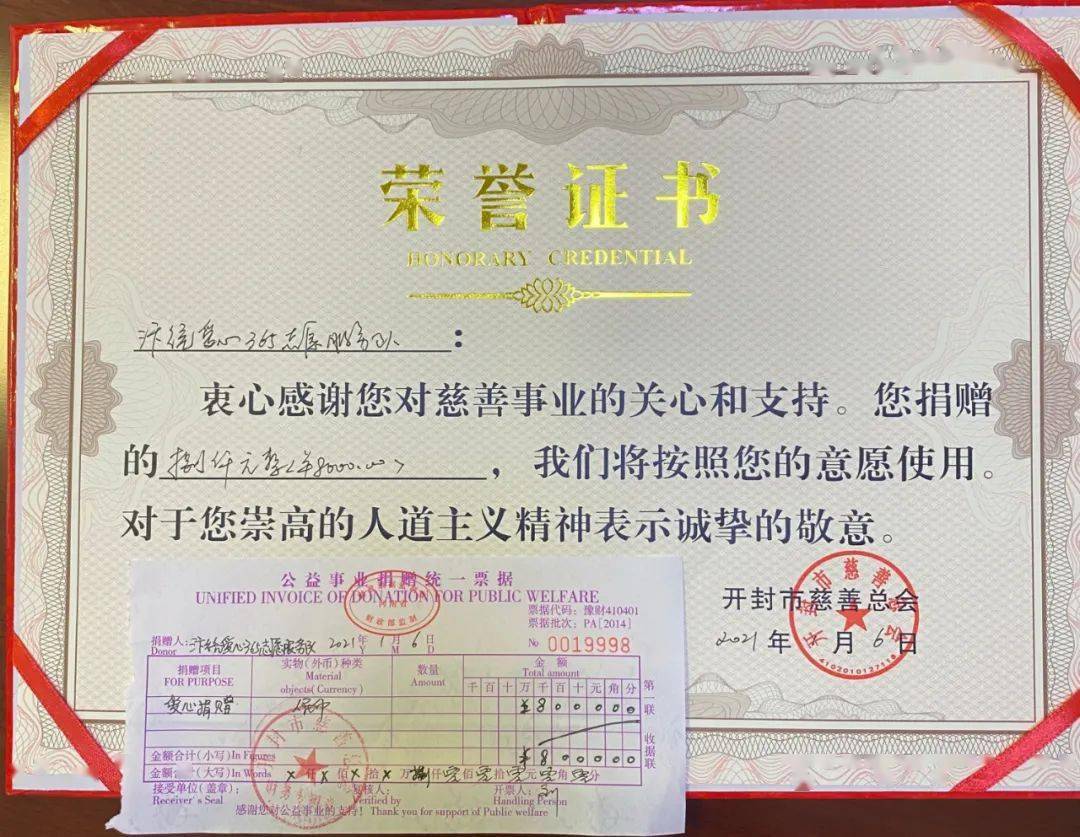 荣誉证书
HONORARY CREDENTIAL
汴绣爱心365志愿服务队：
衷心感谢您对慈善事业的关心和支持。您捐赠
的捌仟元整<¥8000.00>，我们将按照您的意愿使用。
对于您崇高的人道主义精神表示诚挚的敬意。
开封市慈善总会
2021年1月6日
开封市慈善总会
4102010127118
公益事业捐赠统一票据
UNIFIED INVOICE OF DONATION FOR PUBLIC WELFARE
财政部监制
票据代码：豫财410401
票据批次：PA[2014]
捐赠人：汴绣爱心365志愿服务队 2021年1月6日
Donor Y M D
№ 0019998
捐赠项目 实物(外币)种类 数量 金额
FOR PURPOSE Material Amount Total amount
objects(Currency) 千百十万千百十元角分
爱心捐赠 人民币 ¥800000
金额合计(小写)In Figures ¥800000
金额合计(大写)In Words ×仟×佰×拾×万捌仟零佰零拾零元零角零分
接受单位(盖章)： 复核人： 开票人：刘
Receiver's Seal Verified by Handling Person
感谢您对公益事业的支持！Thank you for support of Public welfare
第一联 收据联